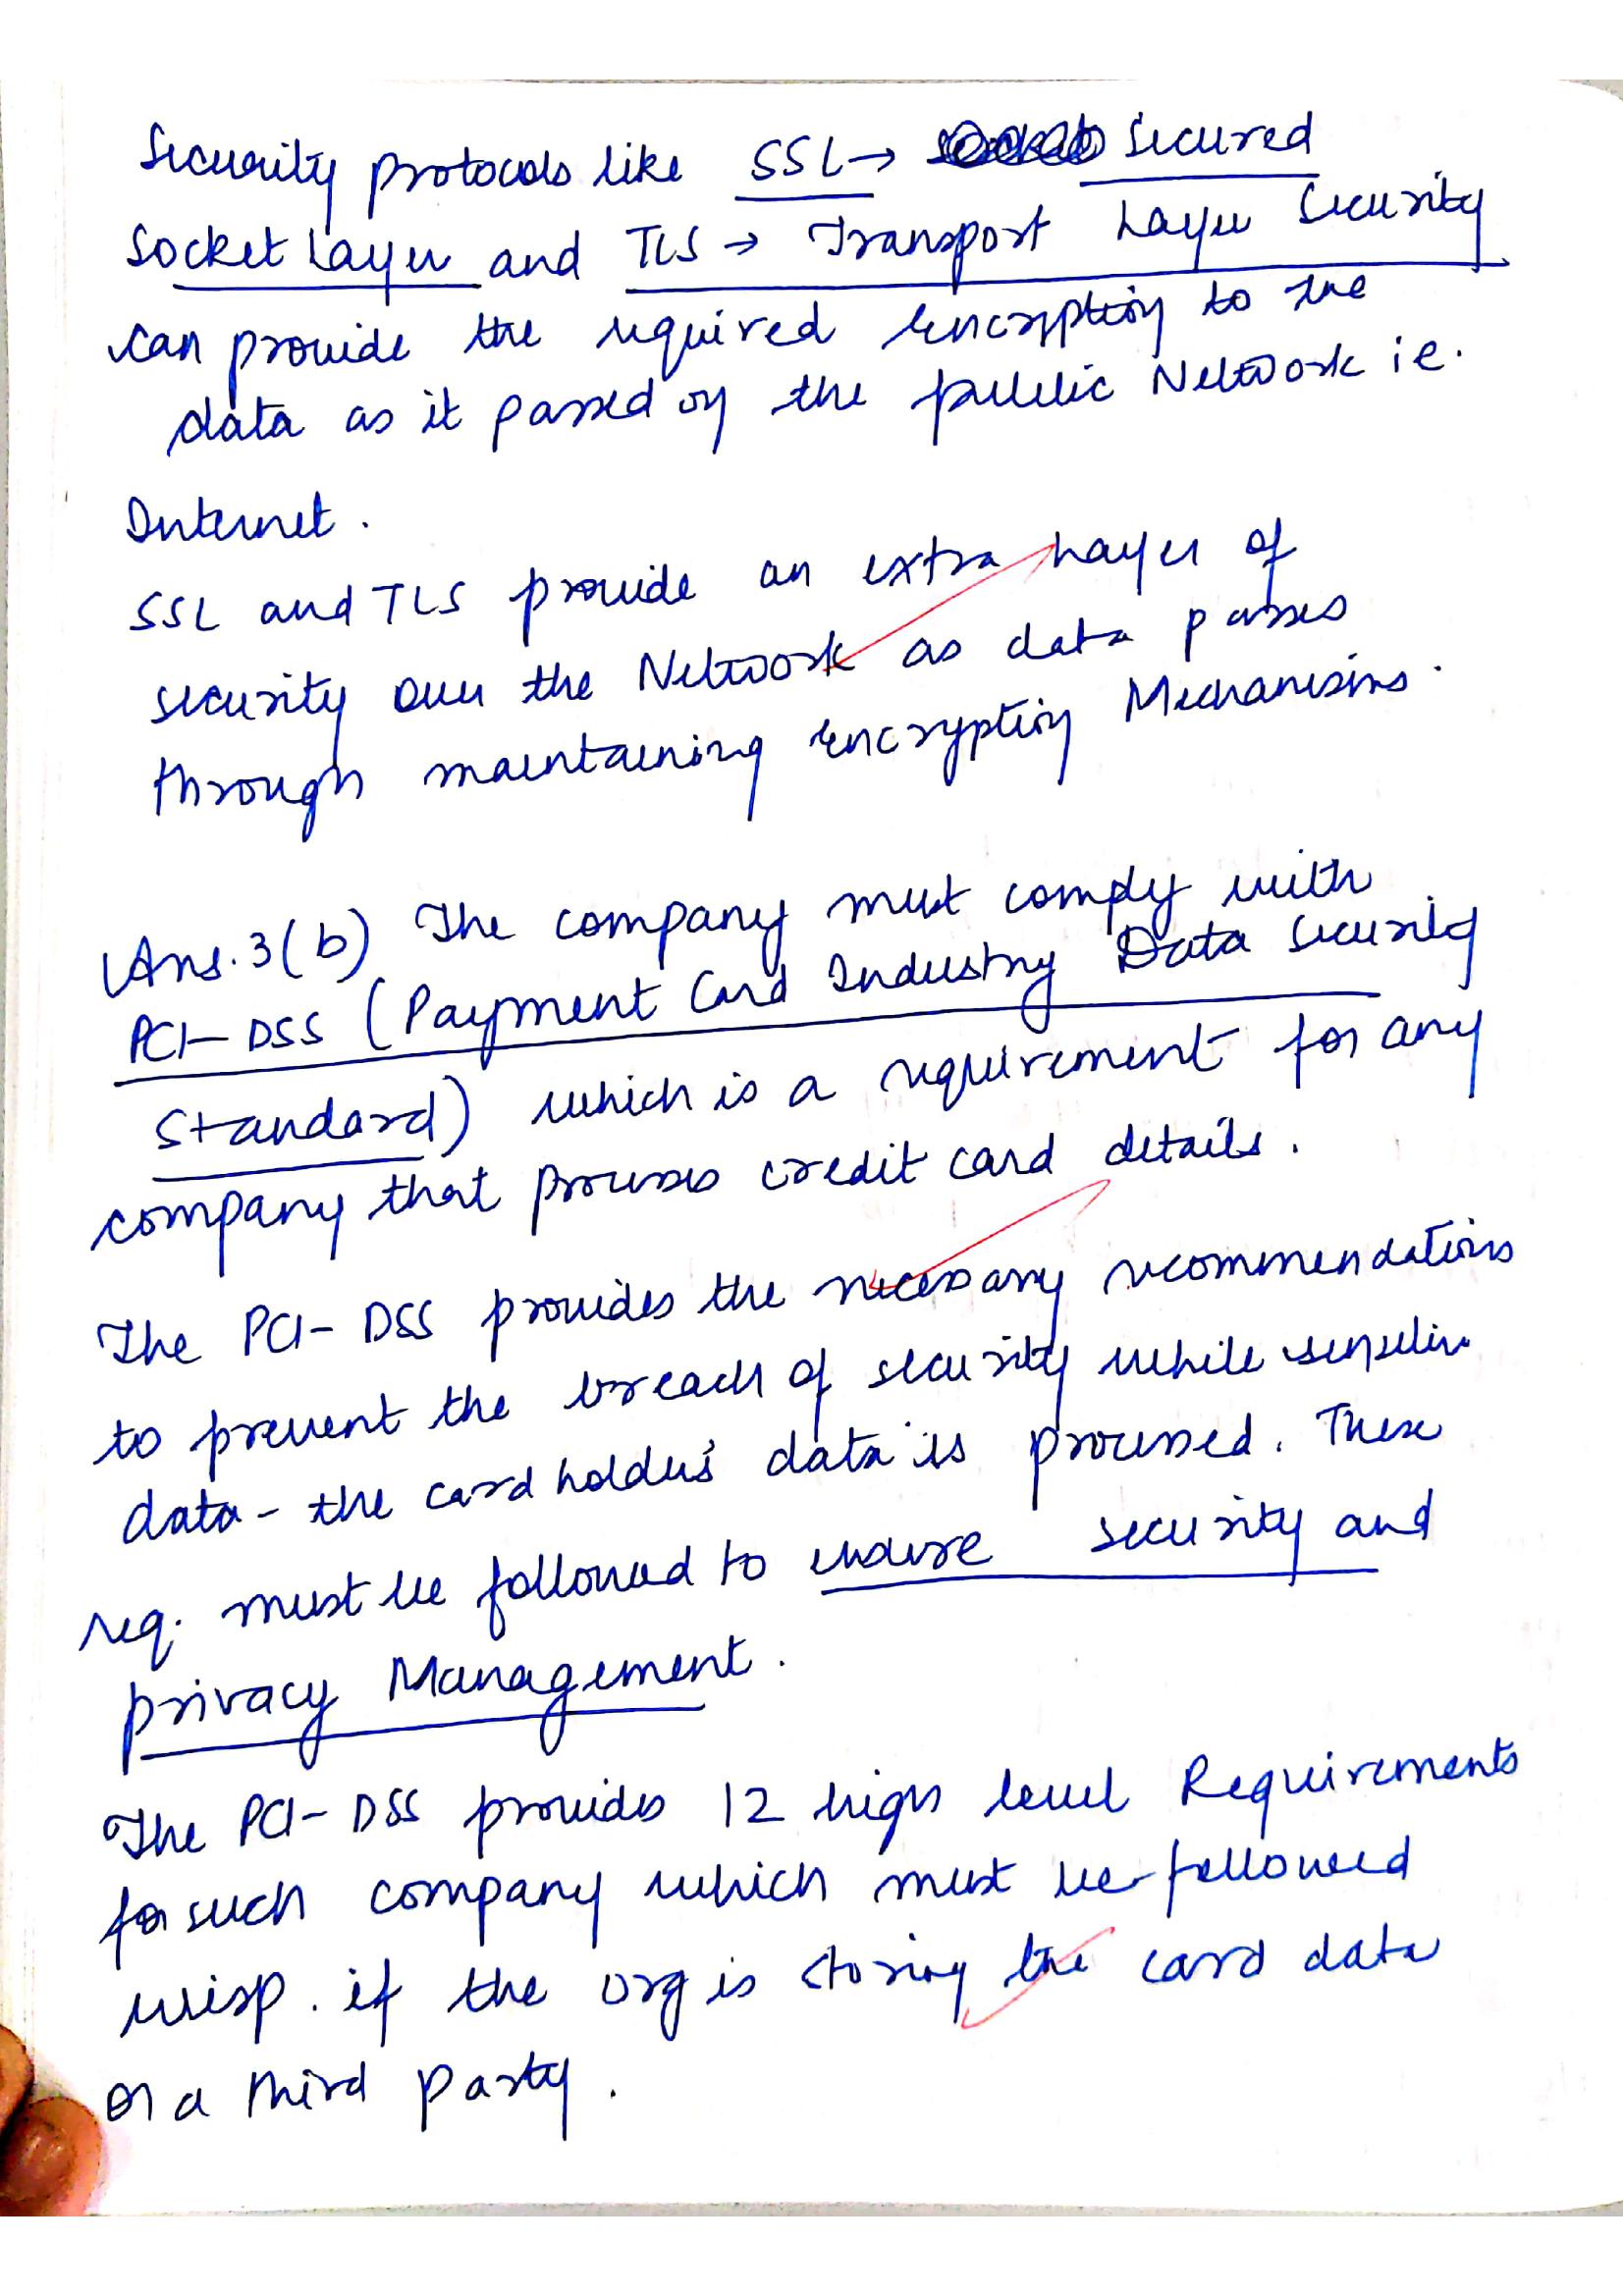 Security protocols like SSL → Secured
Socket Layer and TLS → Transport Layer Security
can provide the required encryption to the
data as it passed on the public Network ie.
Internet.
SSL and TLS provide an extra Layer of
security over the Network as data passes
through maintaining encryption Mechanisms.
Ans. 3(b) The company must comply with
PCI-DSS (Payment Card Industry Data Security
Standard) which is a requirement for any
company that process credit card details.
The PCI-DSS provides the necessary recommendations
to prevent the breach of security while sensitive
data - the card holders' data is processed. These
req. must be followed to ensure security and
privacy Management.
The PCI-DSS provides 12 high level Requirements
for such company which must be followed
irrisp. if the org is storing the card data
or a third party.